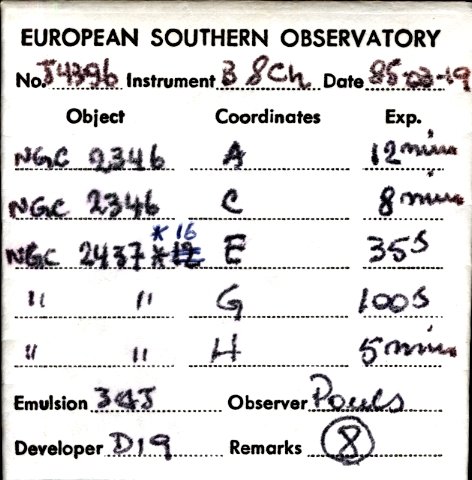 EUROPEAN SOUTHERN OBSERVATORY
No. J4396 Instrument B 8Ch Date 85-02-19
Object Coordinates Exp.
NGC 2346 A 12 mins
NGC 2346 C 8 mins
* 16
NGC 2437 *12 E 35s
" " G 100s
" " H 5 mins
Emulsion 34J Observer Pouls
Developer D19 Remarks 8